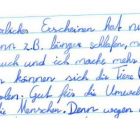 licher Erscheinen hat n
nn z.B. länger schlafen, m
uch und ich mache mehr
n können sich die Tiere
olen: Gut für die Umwel
ie Menschen. Denn wegen